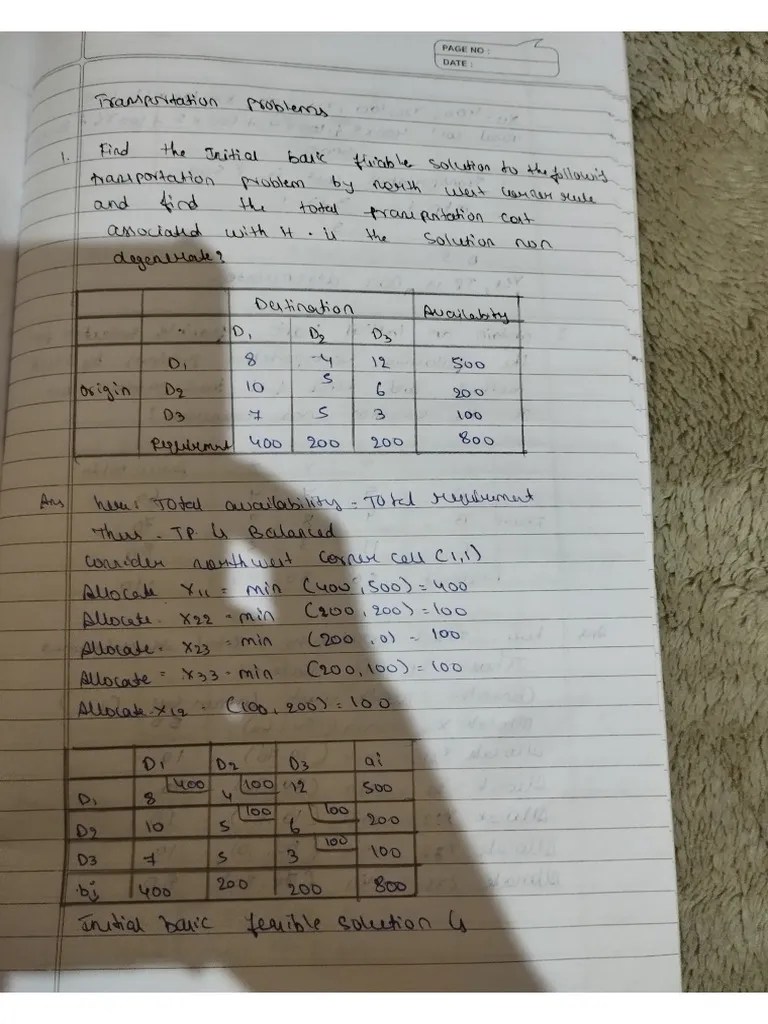 PAGE NO :
DATE :
Transportation Problems
1. Find the Initial basic fisiable solution to the followis
transportation problem by north west corner rule
and find the total transportation cost
associated with it. is the solution non
degenerate?
Destination Availabity
D1 D2 D3
D1 8 4 12 500
Origin D2 10 5 6 200
D3 7 5 3 100
Requirement 400 200 200 800
Ans here: Total availability = Total requirement
Thus. TP is Balanced
Consider northwest corner cell (1,1)
Allocate X11 = min (400, 500) = 400
Allocate. X22 = min (200, 200) = 100
Allocate. X23 = min (200, 0) = 100
Allocate = X33 = min (200, 100) = 100
Allocate X12 = (100, 200) = 100
D1 D2 D3 ai
D1 8 400 4 100 12 500
D2 10 5 100 6 100 200
D3 7 5 3 100 100
bj 400 200 200 800
Initial basic feasible solution is